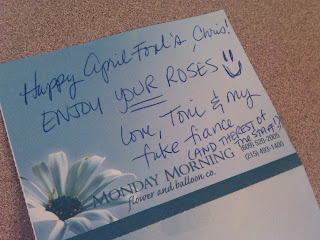 Happy April Fool's, Chris!
ENJOY YOUR ROSES
Love, Toni & my
fake fiance
(AND THE REST OF
THE STAFF!)
MONDAY MORNING
flower and balloon co.
(609) 520-2005
(215) 493-1400